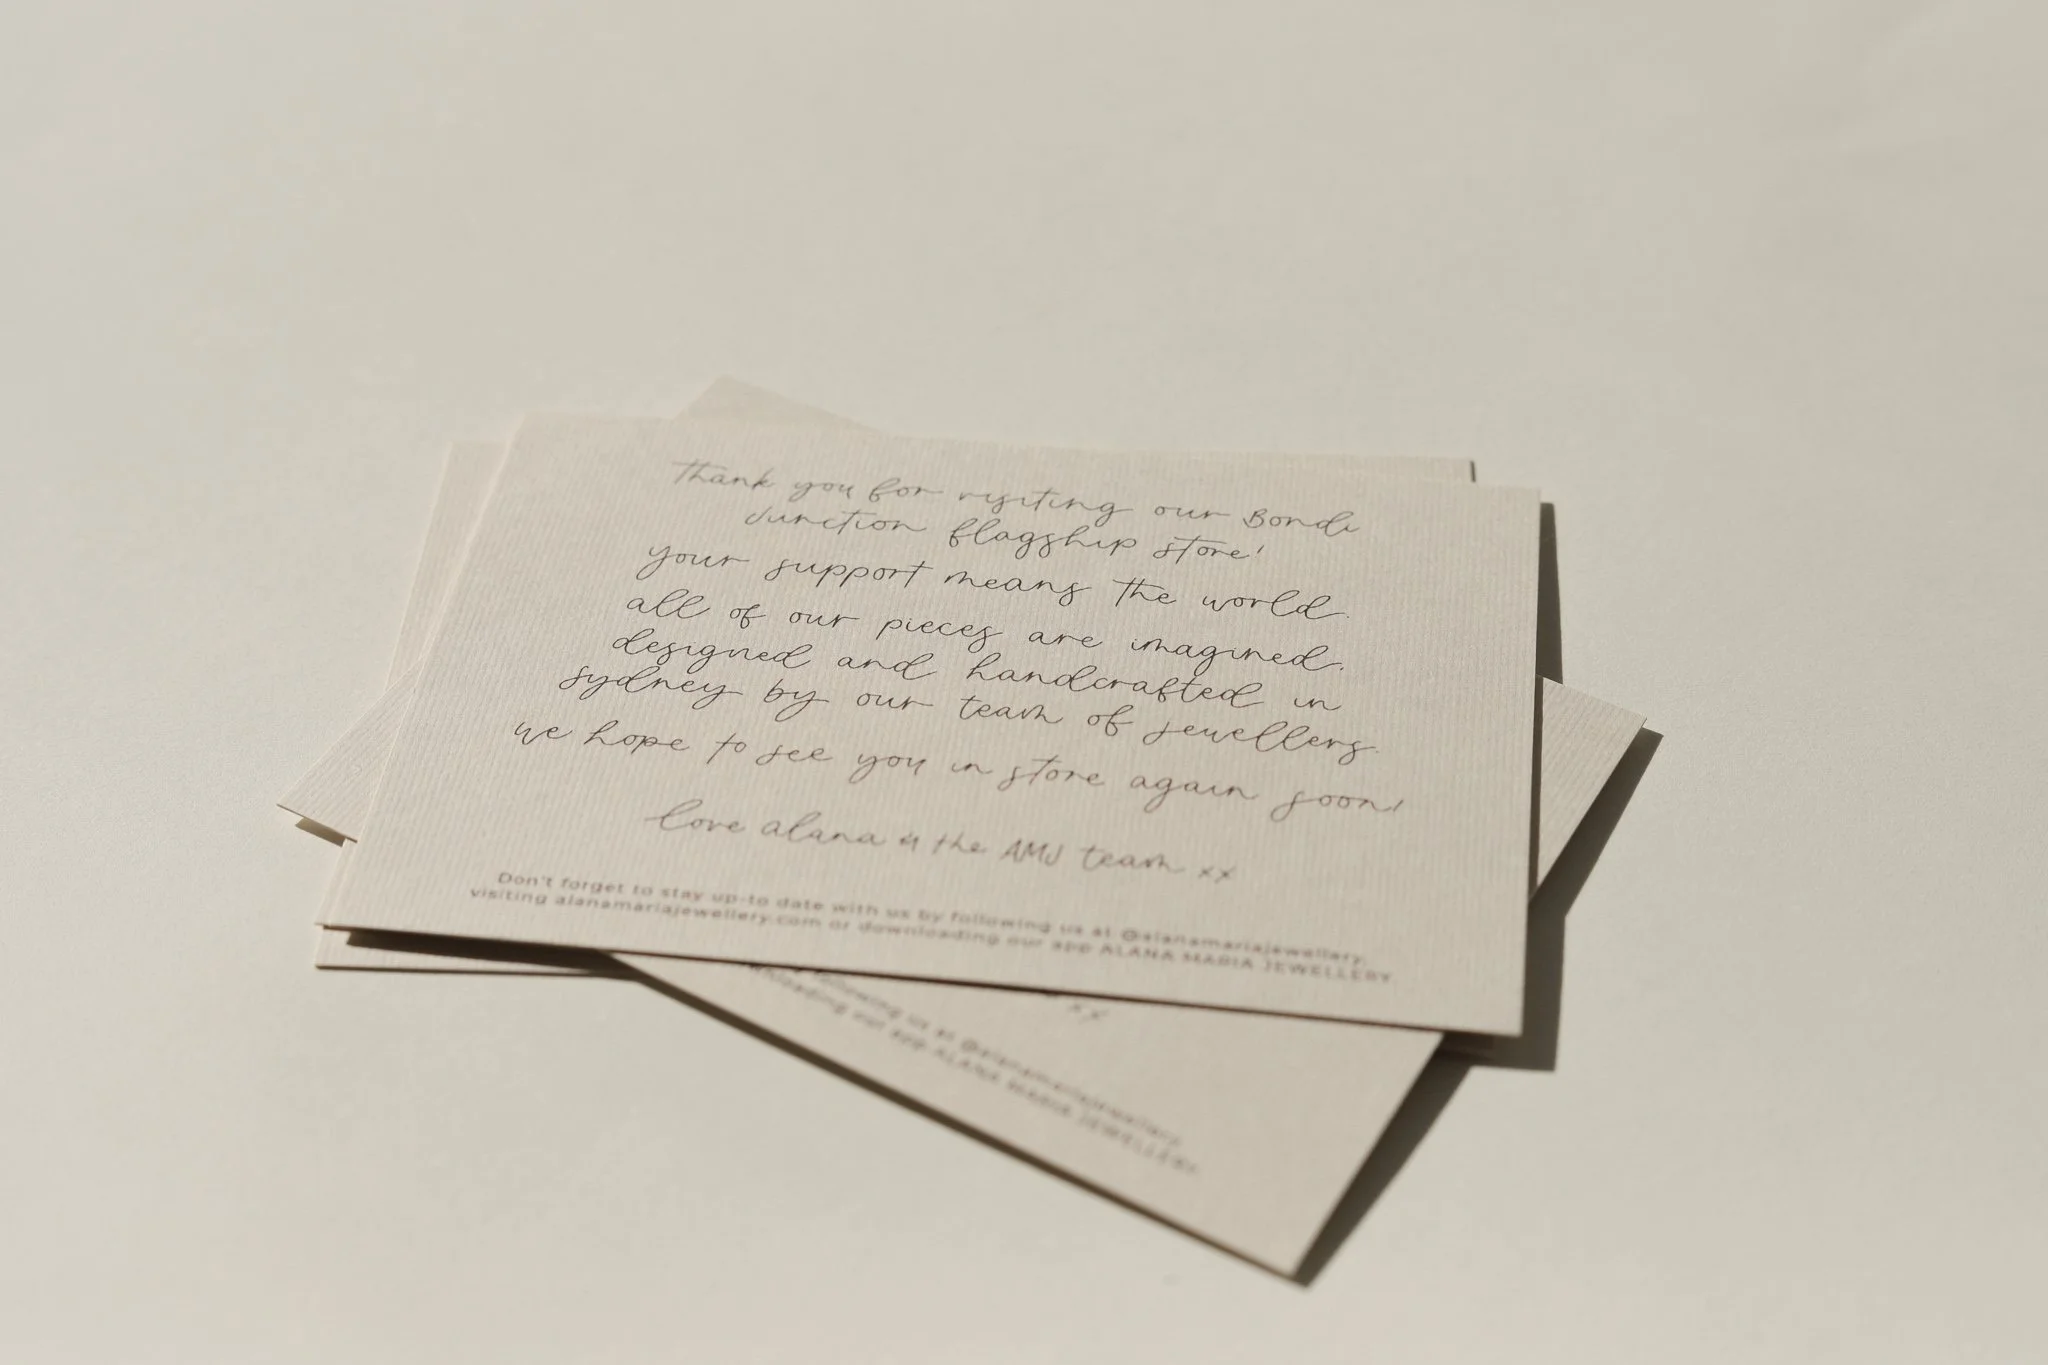 Thank you for visiting our Bondi
Junction flagship store!
your support means the world.
all of our pieces are imagined,
designed and handcrafted in
sydney by our team of jewellers.
we hope to see you in store again soon!
love alana & the AMJ team xx
Don't forget to stay up-to date with us by following us at @alanamariajewellery,
visiting alanamariajewellery.com or downloading our app ALANA MARIA JEWELLERY
xx
following us at @alanamariajewellery,
downloading our app ALANA MARIA JEWELLERY